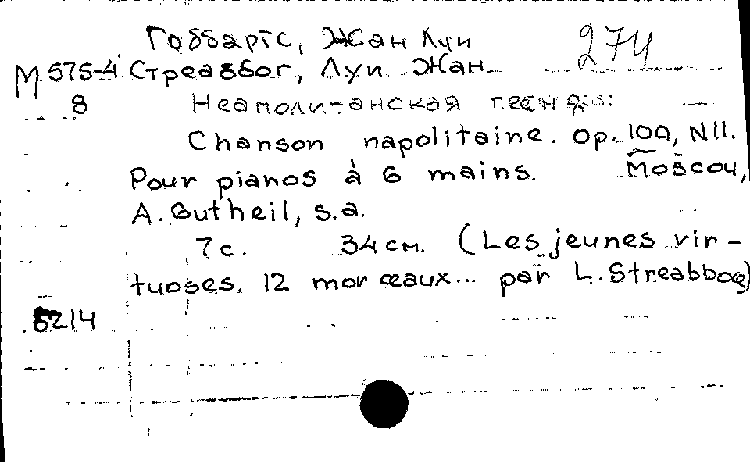 Гоббартс, Жан Луи 274
М 575-4 Стреаббог, Луи Жан
8 Неаполитанская песнь:
Chanson napolitaine. Op. 100, N11.
Pour pianos à 6 mains. Moscou,
A. Gutheil, s.a.
7 с. 34 см. (Les jeunes vir-
tuoses. 12 morceaux... par L. Streabbog)
5214